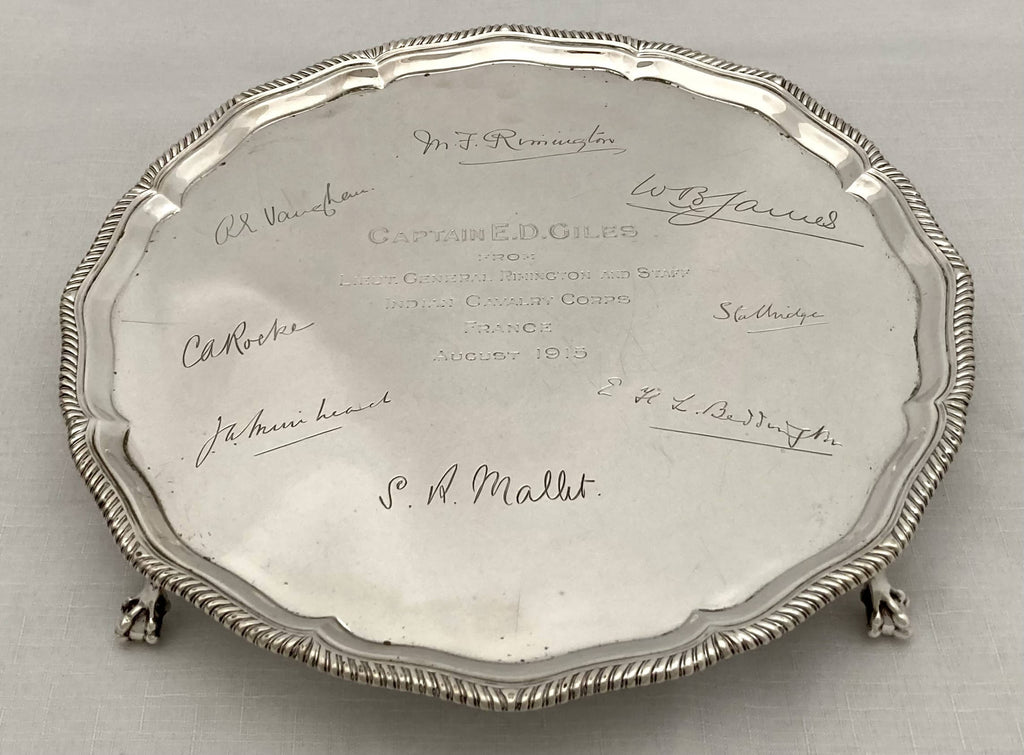 M. F. Rimington
W B James
R E Vaughan.
CAPTAIN E.D. GILES
FROM
LIEUT. GENERAL RIMINGTON AND STAFF
INDIAN CAVALRY CORPS
FRANCE
AUGUST 1915
Stalbridge
CARocke
J A Muirhead
E H L Beddington
S. A. Mallet.